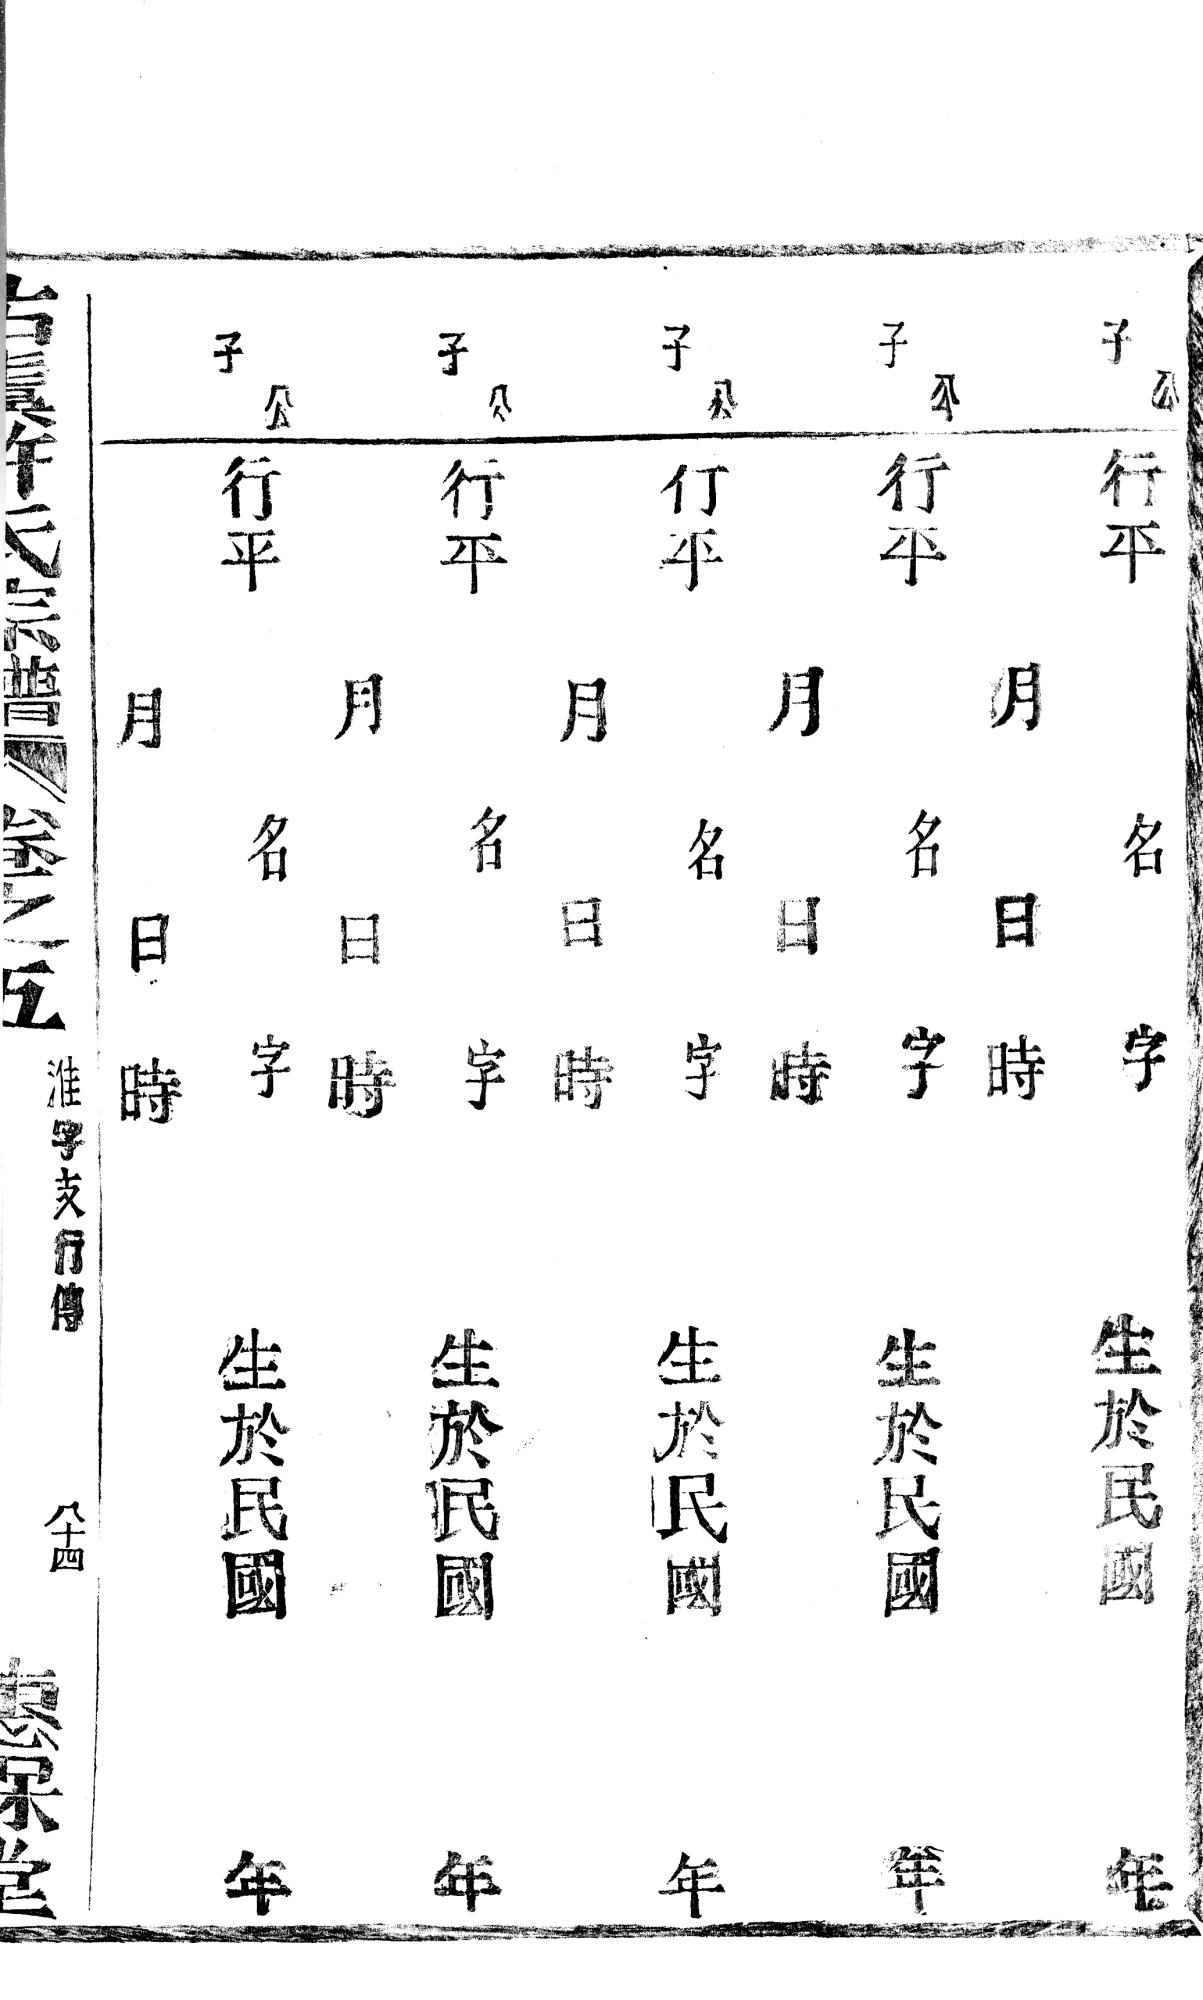 公
子
行平 名 字 生於民國 年
月 日 時
公
子
行平 名 字 生於民國 年
月 日 時
公
子
行平 名 字 生於民國 年
月 日 時
公
子
行平 名 字 生於民國 年
月 日 時
公
子
行平 名 字 生於民國 年
月 日 時
古虞許氏宗譜 卷之五
淮字支行傳
八十四
惠保堂